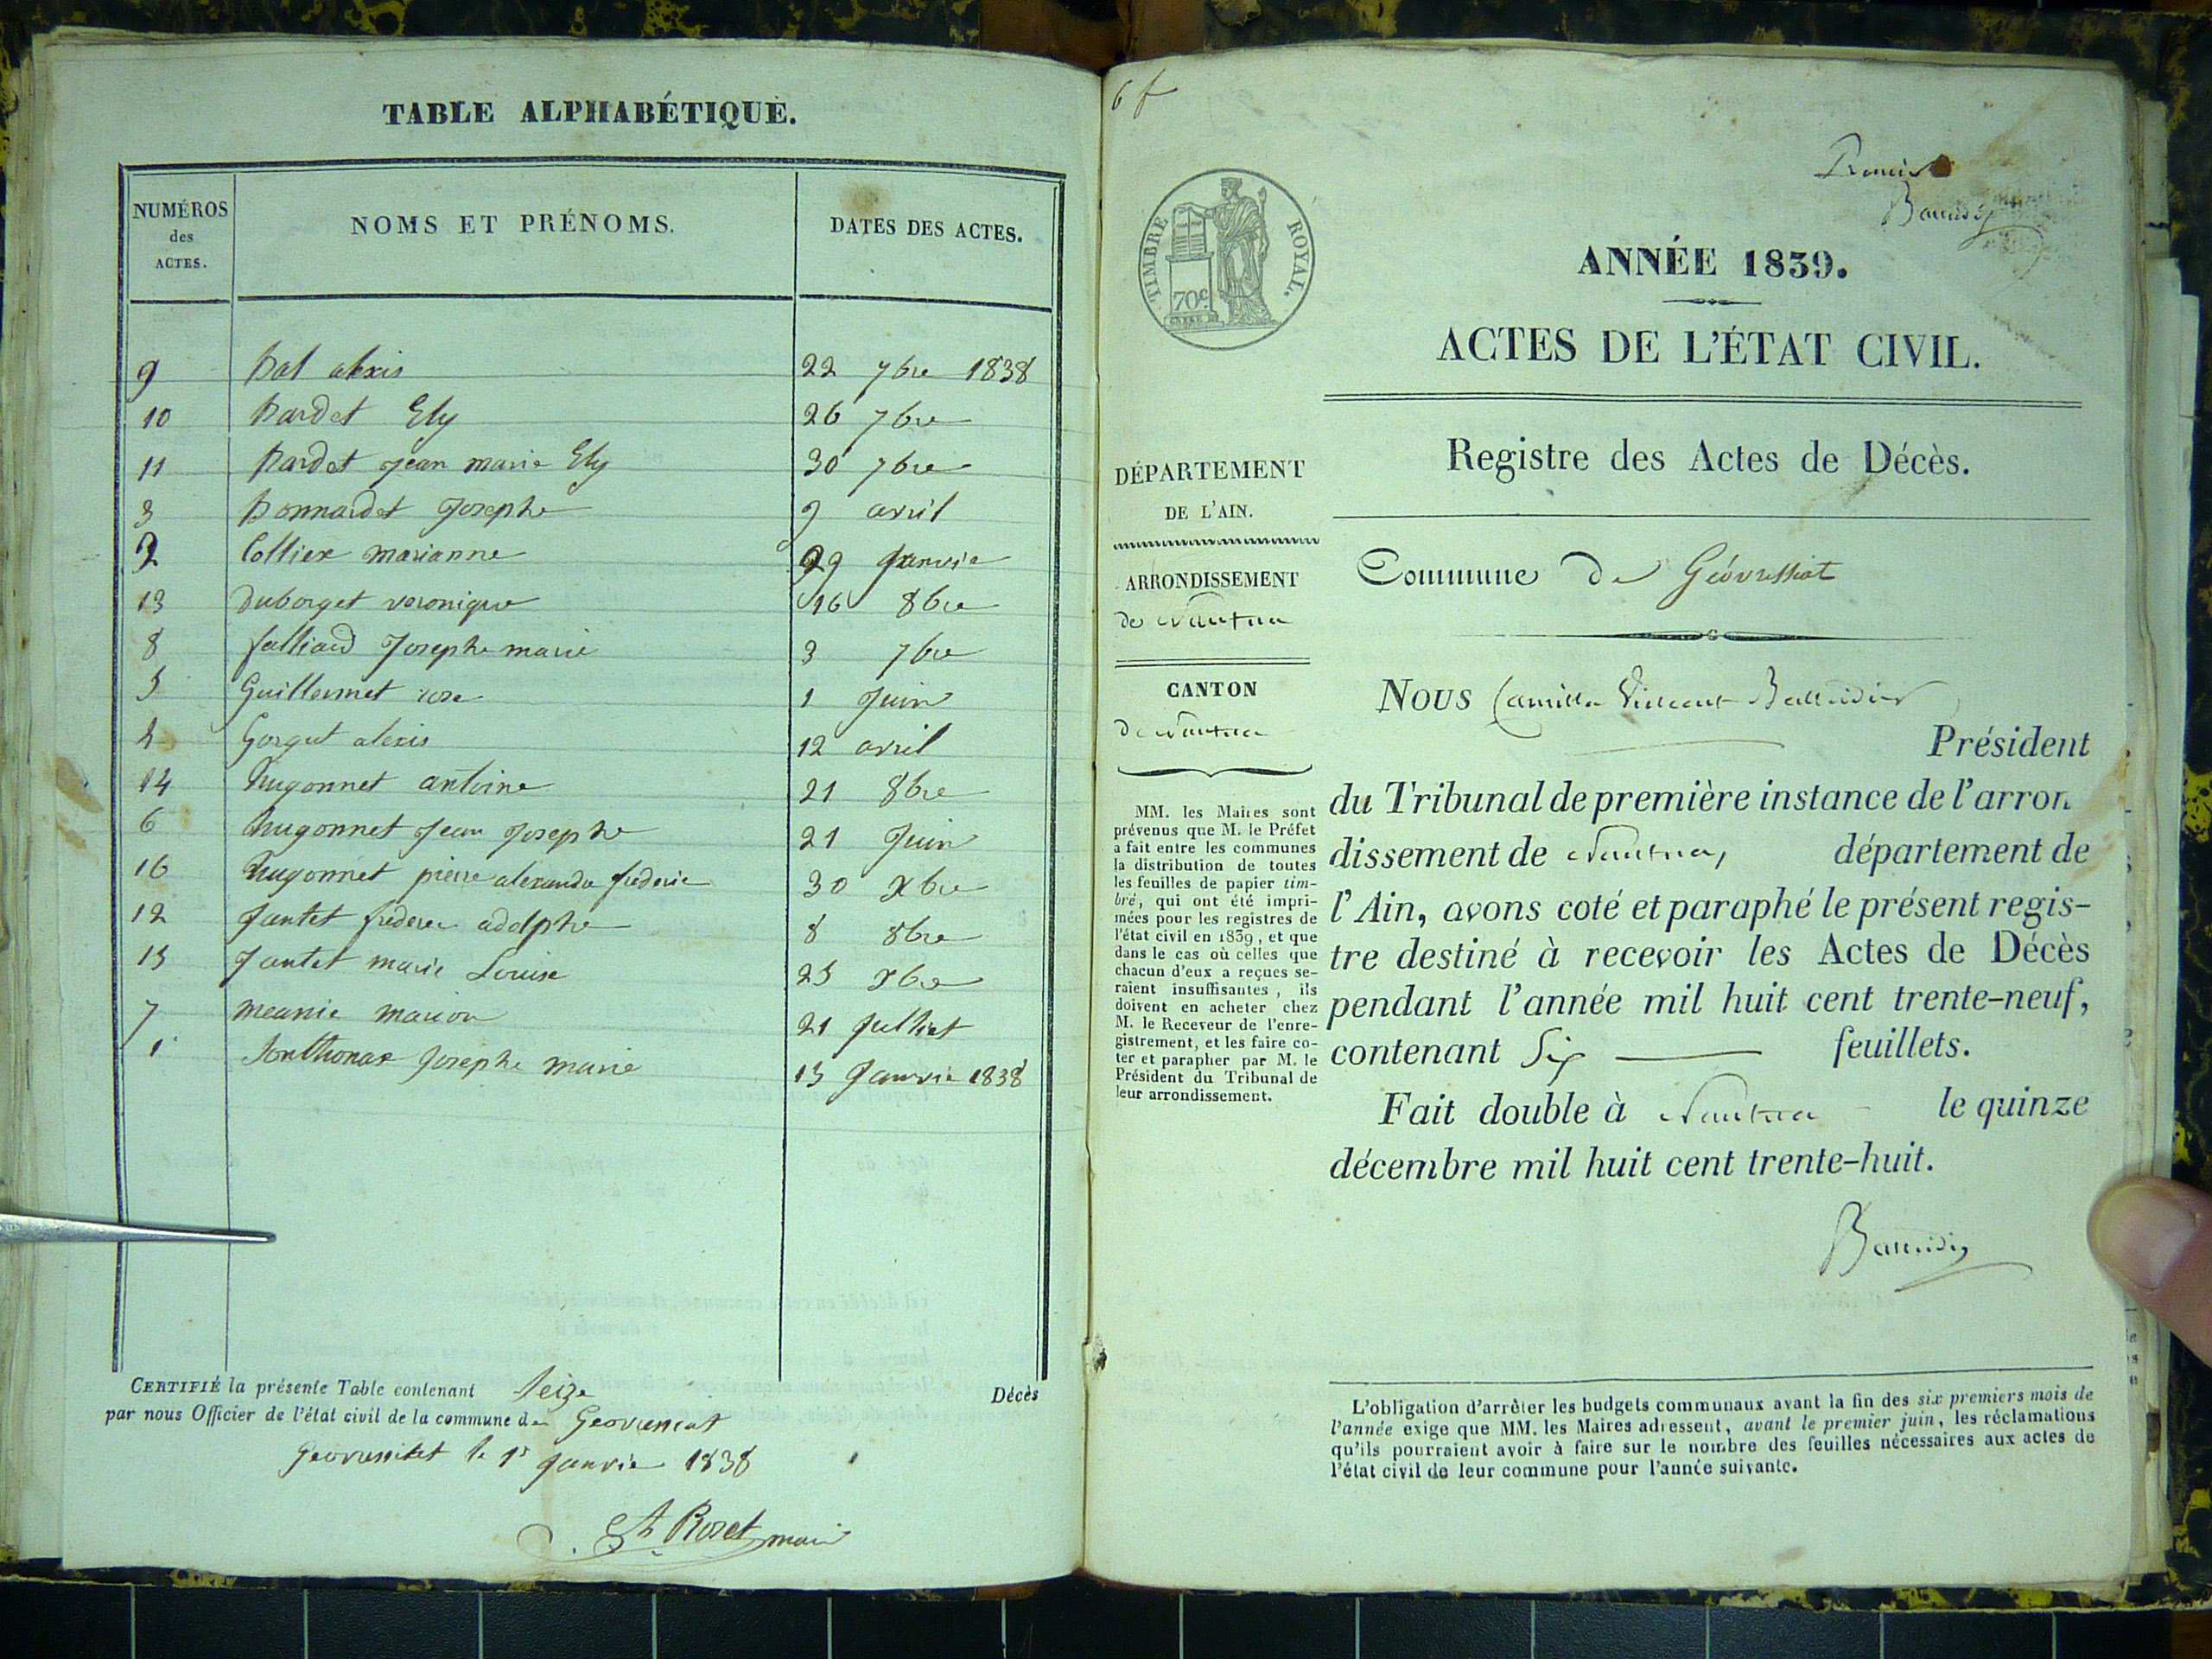 TABLE ALPHABÉTIQUE.
NUMÉROS des ACTES. NOMS ET PRÉNOMS. DATES DES ACTES.
9 Bal alexis 22 7bre 1838
10 Bardet Ely 26 7bre
11 Bardet jean marie Ely 30 7bre
3 Bonnardet Josephe 9 avril
2 Collier marianne 29 Janvie
13 Duborget veronique 16 8bre
8 falliard Josephe marie 3 7bre
5 Guillermet rose 1 Juin
4 Gorgut alexis 12 avril
14 hugonnet antoine 21 8bre
6 hugonnet Jean Josephe 21 Juin
16 hugonnet pierre alexandre frederic 30 Xbre
12 Jantet frederic adolphe 8 8bre
15 Jantet marie Louise 25 Xbre
7 meanie marion 21 Julliet
1 Sonthonax Josephe marie 15 Janvie 1838
CERTIFIÉ la présente Table contenant seize Décès
par nous Officier de l'état civil de la commune de
le 1r Janvie 1838
Rozet mair
6 f
Premier
TIMBRE ROYAL.
70c
ANNÉE 1839.
ACTES DE L'ÉTAT CIVIL.
Registre des Actes de Décès.
DÉPARTEMENT
DE L'AIN.
ARRONDISSEMENT
de Nantua
CANTON
de Nantua
MM. les Maires sont
prévenus que M. le Préfet
a fait entre les communes
la distribution de toutes
les feuilles de papier tim-
bré, qui ont été impri-
mées pour les registres de
l'état civil en 1839, et que
dans le cas où celles que
chacun d'eux a reçues se-
raient insuffisantes, ils
doivent en acheter chez
M. le Receveur de l'enre-
gistrement, et les faire co-
ter et parapher par M. le
Président du Tribunal de
leur arrondissement.
Commune de Géovressiat
NOUS Camille Vincent
Président
du Tribunal de première instance de l'arron
dissement de Nantua, département de
l'Ain, avons coté et paraphé le présent regis-
tre destiné à recevoir les Actes de Décès
pendant l'année mil huit cent trente-neuf,
contenant Six feuillets.
Fait double à Nantua le quinze
décembre mil huit cent trente-huit.
L'obligation d'arrêter les budgets communaux avant la fin des six premiers mois de
l'année exige que MM. les Maires adressent, avant le premier juin, les réclamations
qu'ils pourraient avoir à faire sur le nombre des feuilles nécessaires aux actes de
l'état civil de leur commune pour l'année suivante.